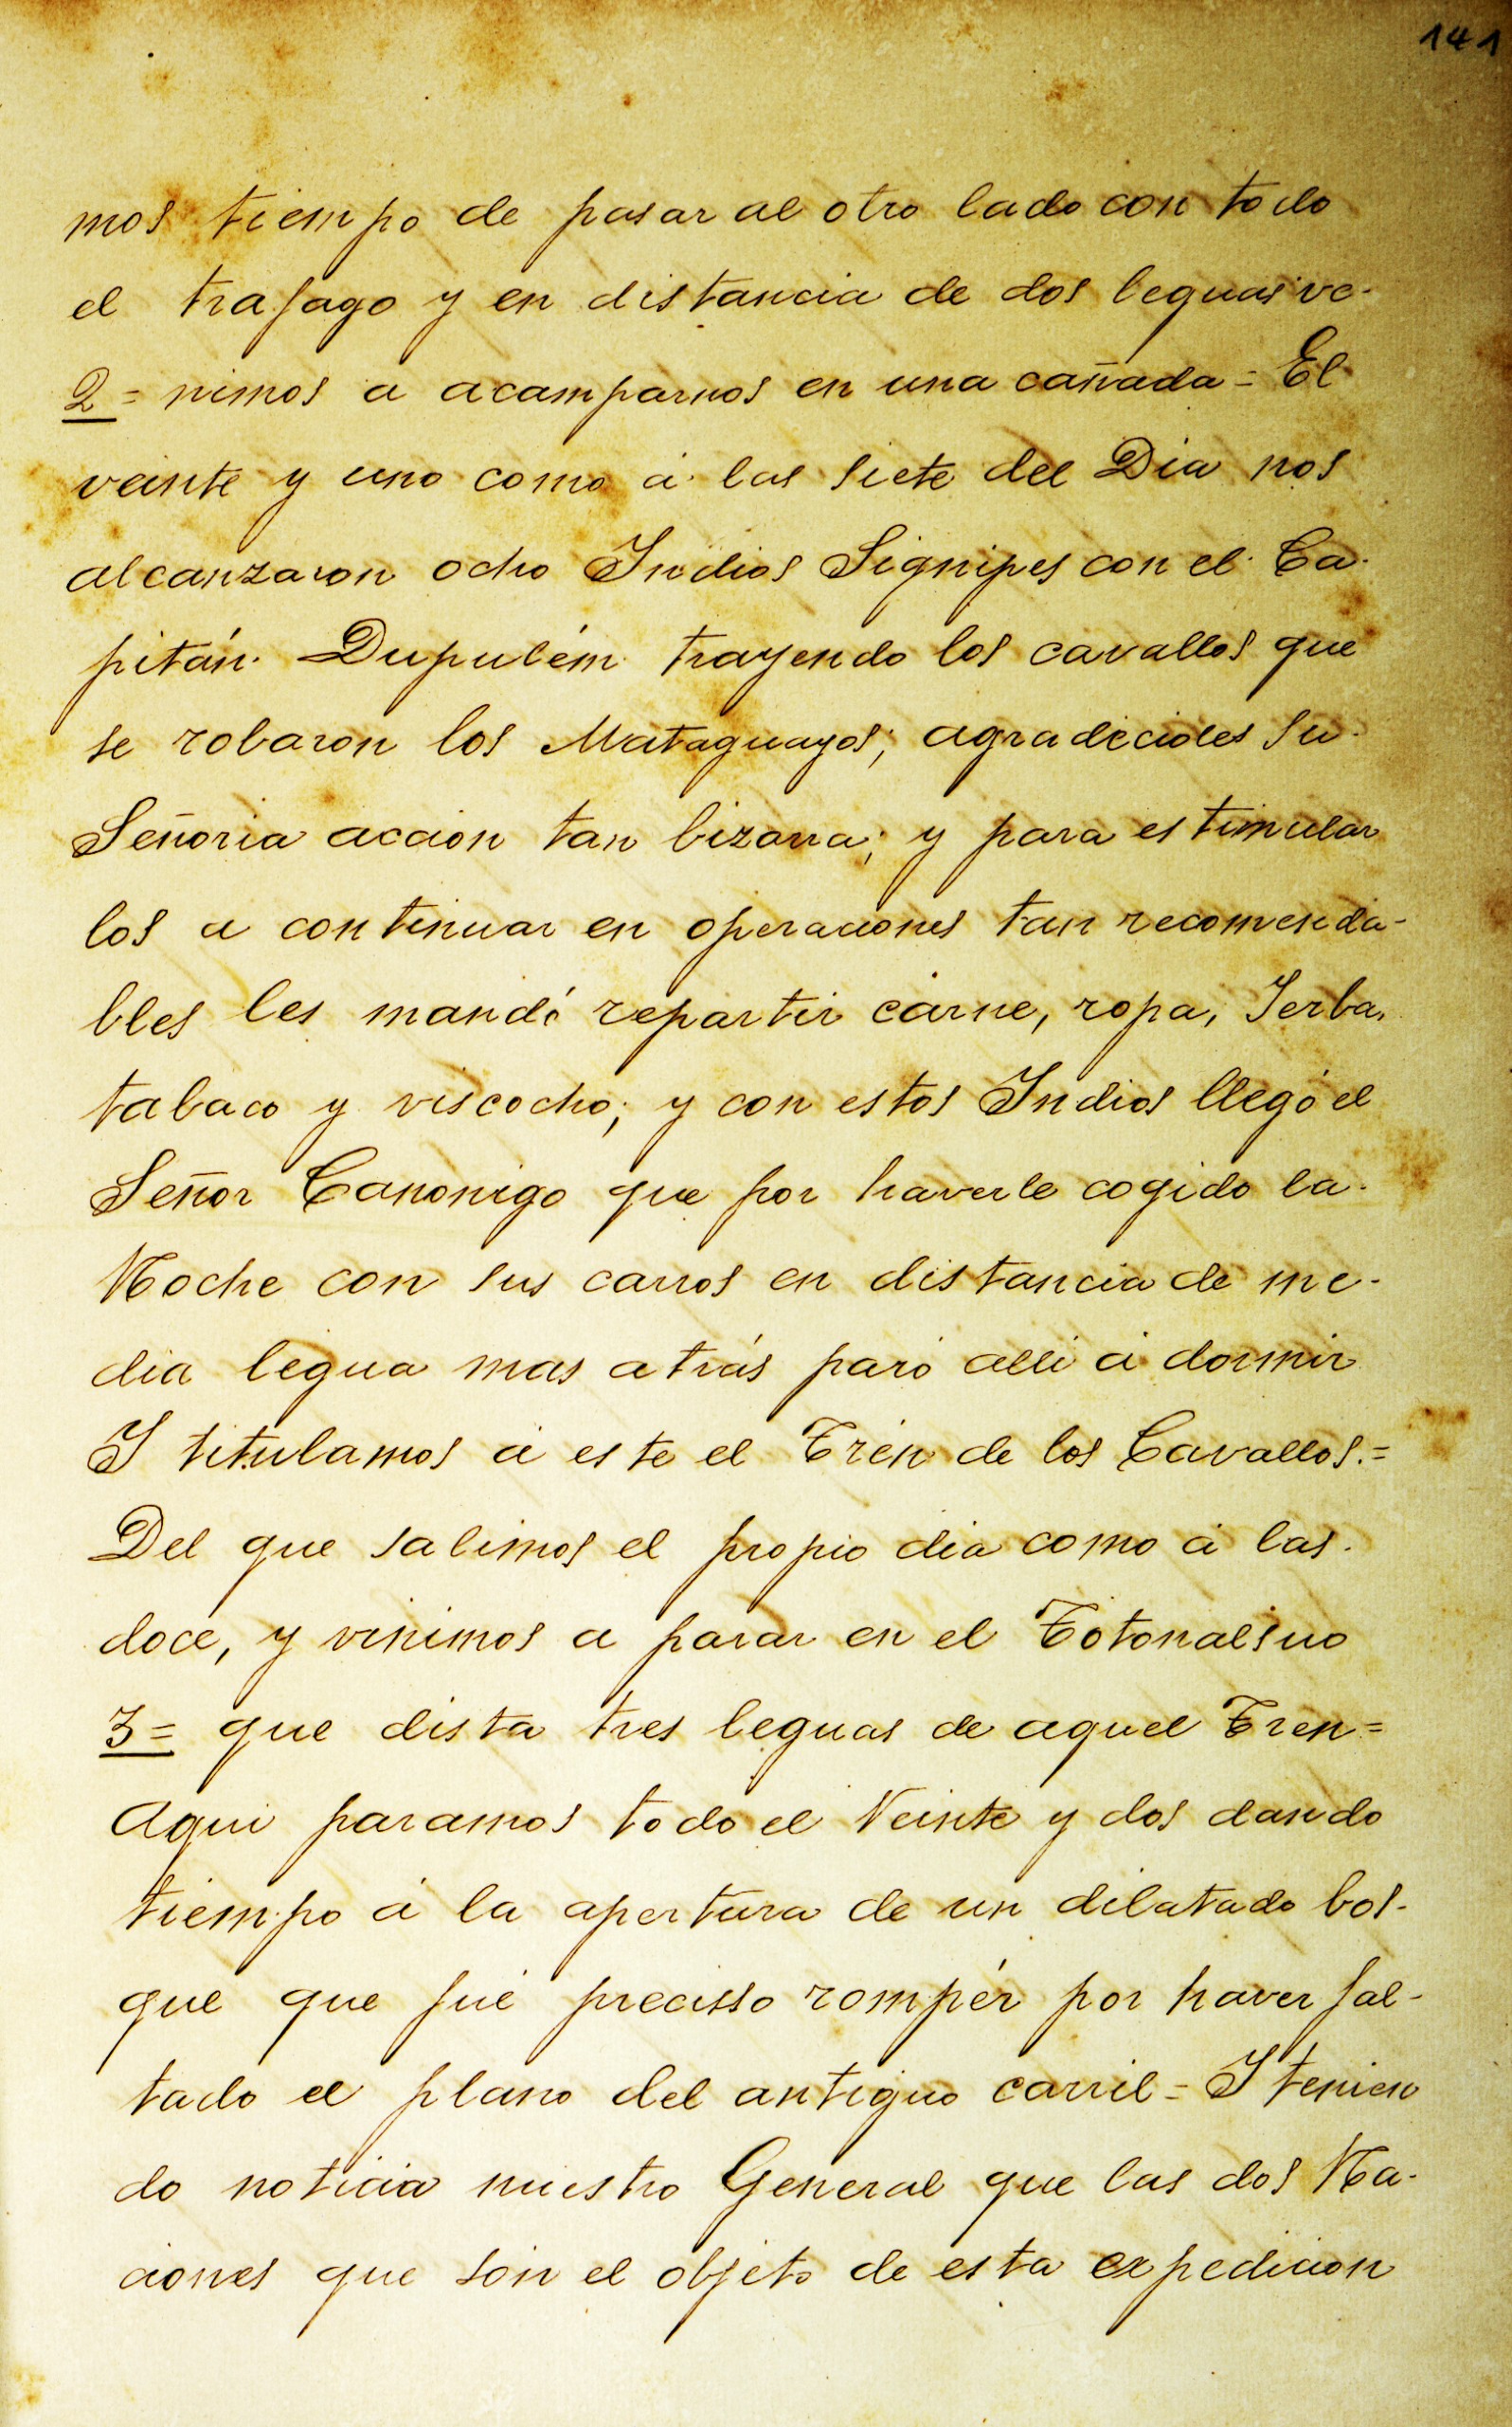 141
mos tiempo de pasar al otro lado con todo
el trafago y en distancia de dos leguas ve-
2 = nimos a acamparnos en una cañada = El
veinte y uno como á las siete del Dia nos
alcanzaron ocho Indios Signipes con el Ca-
pitán Dupulém trayendo los cavallos que
se robaron los Mataguayos; agradecioles su
Señoria accion tan bizarra; y para estimular
los a continuar en operaciones tan recomenda-
bles les mandó repartir carne, ropa, Ierba,
tabaco y viscocho; y con estos Indios llegó el
Señor Canonigo que por haverle cogido la
Noche con sus carros en distancia de me-
dia legua mas atrás paró alli á dormir
I titulamos á este el Trén de los Cavallos.=
Del que salimos el propio dia como á las
doce, y vinimos a parar en el Totoralsuo
3 = que dista tres leguas de aquel Tren =
Aqui paramos todo el Veinte y dos dando
tiempo á la apertura de un dilatado bos-
que que fué precisso rompér por haver fal-
tado el plano del antiguo carril = I tenien
do noticia nuestro General que las dos Na-
ciones que són el objeto de esta expedicion